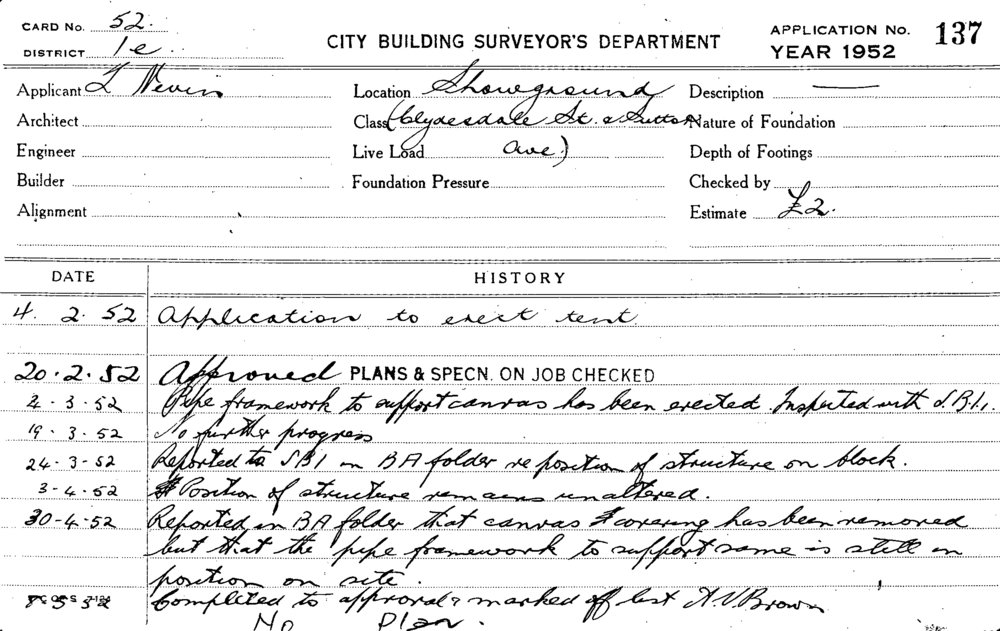 CARD No. 52.
DISTRICT 1e
CITY BUILDING SURVEYOR'S DEPARTMENT
APPLICATION No. 137
YEAR 1952
Applicant L Nevin
Location Showground
Description —
Architect
Class (Clydesdale St. & Sutton
Nature of Foundation
Engineer
Live Load Ave)
Depth of Footings
Builder
Foundation Pressure
Checked by
Alignment
Estimate £2.
DATE HISTORY
4. 2. 52 Application to erect tent
20. 2. 52 Approved PLANS & SPECN. ON JOB CHECKED
4. 3. 52 Pipe framework to support canvas has been erected. Inspected with S.B.I.
19. 3. 52 No further progress
24-3-52 Reported to SBI in BA folder re position of structure on block.
3-4.52 Position of structure remains unaltered.
30-4.52 Reported in BA folder that canvas covering has been removed
but that the pipe framework to support same is still in
position on site.
8 5 52 Completed to approval & marked off list A.V. Brown
No Plan.